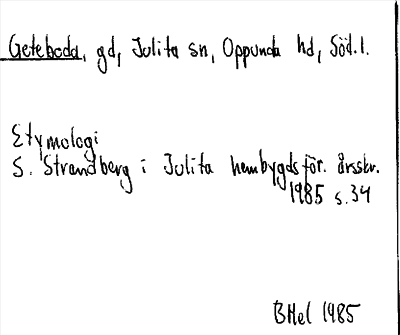 Geteboda, gd, Julita sn, Oppunda hd, Söd.l.
Etymologi
S. Strandberg i Julita hembygdsför. årsskr.
1985 s.34
BHel 1985